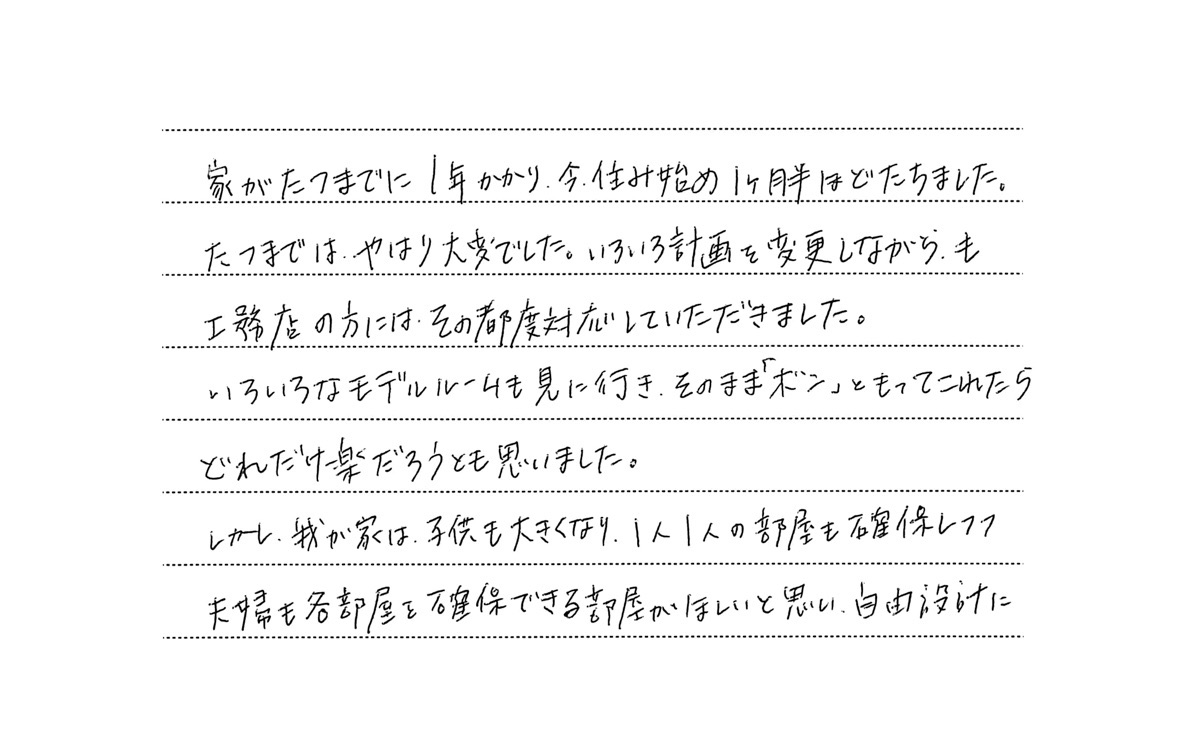 家がたつまでに1年かかり、今、住み始め1ヶ月半ほどたちました。
たつまでは、やはり大変でした。いろいろ計画を変更しながら、も
工務店の方には、その都度対応していただきました。
いろいろなモデルルームも見に行き、そのまま「ボン」ともってこれたら
どれだけ楽だろうとも思いました。
しかし、我が家は、子供も大きくなり、1人1人の部屋も確保しつつ
夫婦も各部屋を確保できる部屋がほしいと思い、自由設計に